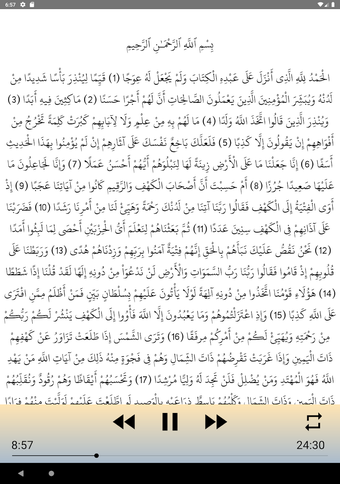 6:57
بِسْمِ ٱللَّهِ ٱلرَّحْمَـٰنِ ٱلرَّحِيمِ
الْحَمْدُ لِلَّهِ الَّذِي أَنْزَلَ عَلَى عَبْدِهِ الْكِتَابَ وَلَمْ يَجْعَلْ لَهُ عِوَجًا (1) قَيِّمًا لِيُنْذِرَ بَأْسًا شَدِيدًا مِنْ
لَدُنْهُ وَيُبَشِّرَ الْمُؤْمِنِينَ الَّذِينَ يَعْمَلُونَ الصَّالِحَاتِ أَنَّ لَهُمْ أَجْرًا حَسَنًا (2) مَاكِثِينَ فِيهِ أَبَدًا (3)
وَيُنْذِرَ الَّذِينَ قَالُوا اتَّخَذَ اللَّهُ وَلَدًا (4) مَا لَهُمْ بِهِ مِنْ عِلْمٍ وَلَا لِآبَائِهِمْ كَبُرَتْ كَلِمَةً تَخْرُجُ مِنْ
أَفْوَاهِهِمْ إِنْ يَقُولُونَ إِلَّا كَذِبًا (5) فَلَعَلَّكَ بَاخِعٌ نَفْسَكَ عَلَى آثَارِهِمْ إِنْ لَمْ يُؤْمِنُوا بِهَذَا الْحَدِيثِ
أَسَفًا (6) إِنَّا جَعَلْنَا مَا عَلَى الْأَرْضِ زِينَةً لَهَا لِنَبْلُوَهُمْ أَيُّهُمْ أَحْسَنُ عَمَلًا (7) وَإِنَّا لَجَاعِلُونَ مَا
عَلَيْهَا صَعِيدًا جُرُزًا (8) أَمْ حَسِبْتَ أَنَّ أَصْحَابَ الْكَهْفِ وَالرَّقِيمِ كَانُوا مِنْ آيَاتِنَا عَجَبًا (9) إِذْ
أَوَى الْفِتْيَةُ إِلَى الْكَهْفِ فَقَالُوا رَبَّنَا آتِنَا مِنْ لَدُنْكَ رَحْمَةً وَهَيِّئْ لَنَا مِنْ أَمْرِنَا رَشَدًا (10) فَضَرَبْنَا
عَلَى آذَانِهِمْ فِي الْكَهْفِ سِنِينَ عَدَدًا (11) ثُمَّ بَعَثْنَاهُمْ لِنَعْلَمَ أَيُّ الْحِزْبَيْنِ أَحْصَى لِمَا لَبِثُوا أَمَدًا
(12) نَحْنُ نَقُصُّ عَلَيْكَ نَبَأَهُمْ بِالْحَقِّ إِنَّهُمْ فِتْيَةٌ آمَنُوا بِرَبِّهِمْ وَزِدْنَاهُمْ هُدًى (13) وَرَبَطْنَا عَلَى
قُلُوبِهِمْ إِذْ قَامُوا فَقَالُوا رَبُّنَا رَبُّ السَّمَوَاتِ وَالْأَرْضِ لَنْ نَدْعُوَاْ مِنْ دُونِهِ إِلَهًا لَقَدْ قُلْنَا إِذًا شَطَطًا
(14) هَؤُلَاءِ قَوْمُنَا اتَّخَذُوا مِنْ دُونِهِ آلِهَةً لَوْلَا يَأْتُونَ عَلَيْهِمْ بِسُلْطَانٍ بَيِّنٍ فَمَنْ أَظْلَمُ مِمَّنِ افْتَرَى
عَلَى اللَّهِ كَذِبًا (15) وَإِذِ اعْتَزَلْتُمُوهُمْ وَمَا يَعْبُدُونَ إِلَّا اللَّهَ فَأْوُوا إِلَى الْكَهْفِ يَنْشُرْ لَكُمْ رَبُّكُمْ
مِنْ رَحْمَتِهِ وَيُهَيِّئْ لَكُمْ مِنْ أَمْرِكُمْ مِرفَقًا (16) وَتَرَى الشَّمْسَ إِذَا طَلَعَتْ تَزَاوَرُ عَنْ كَهْفِهِمْ
ذَاتَ الْيَمِينِ وَإِذَا غَرَبَتْ تَقْرِضُهُمْ ذَاتَ الشِّمَالِ وَهُمْ فِي فَجْوَةٍ مِنْهُ ذَلِكَ مِنْ آيَاتِ اللَّهِ مَنْ يَهْدِ
اللَّهُ فَهُوَ الْمُهْتَدِ وَمَنْ يُضْلِلْ فَلَنْ تَجِدَ لَهُ وَلِيًّا مُرْشِدًا (17) وَتَحْسَبُهُمْ أَيْقَاظًا وَهُمْ رُقُودٌ وَنُقَلِّبُهُمْ
ذَاتَ الْيَمِينِ وَذَاتَ الشِّمَالِ وَكَلْبُهُمْ بَاسِطٌ ذِرَاعَيْهِ بِالْوَصِيدِ لَوِ اطَّلَعْتَ عَلَيْهِمْ لَوَلَّيْتَ مِنْهُمْ فِرَارًا
8:57
24:30